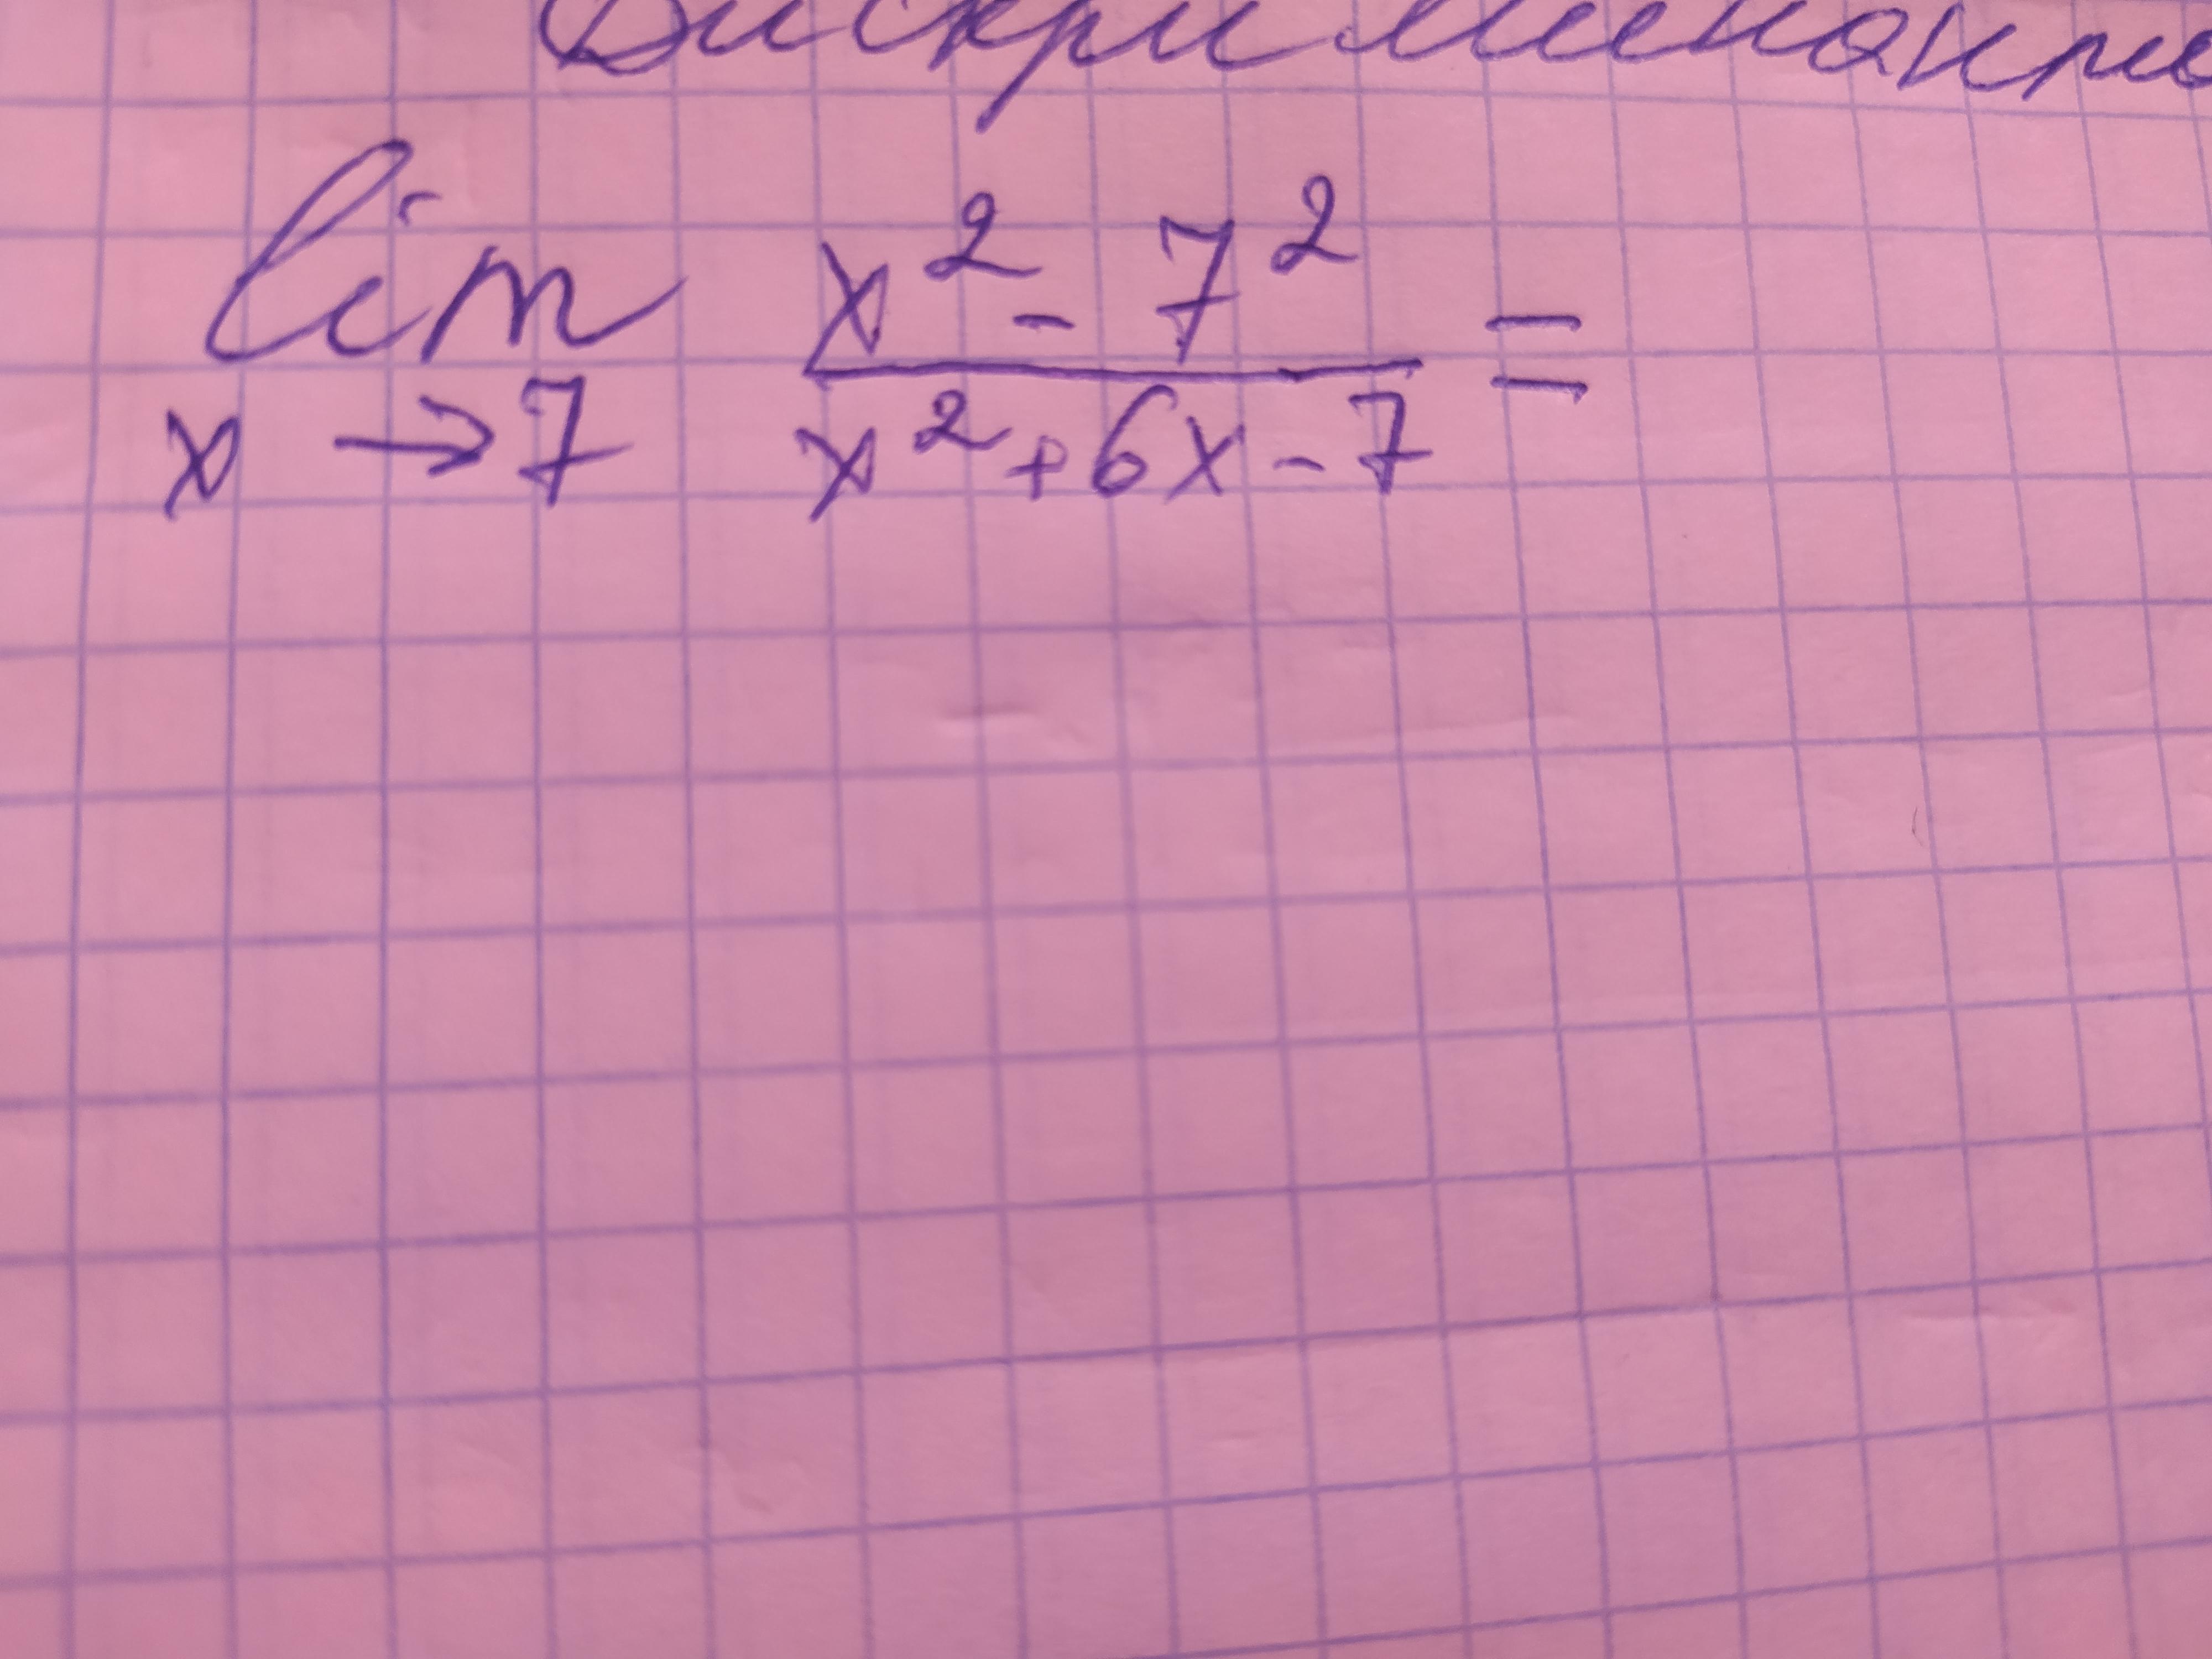 Дискриминант
lim x² - 7² =
x → 7 x² + 6x - 7